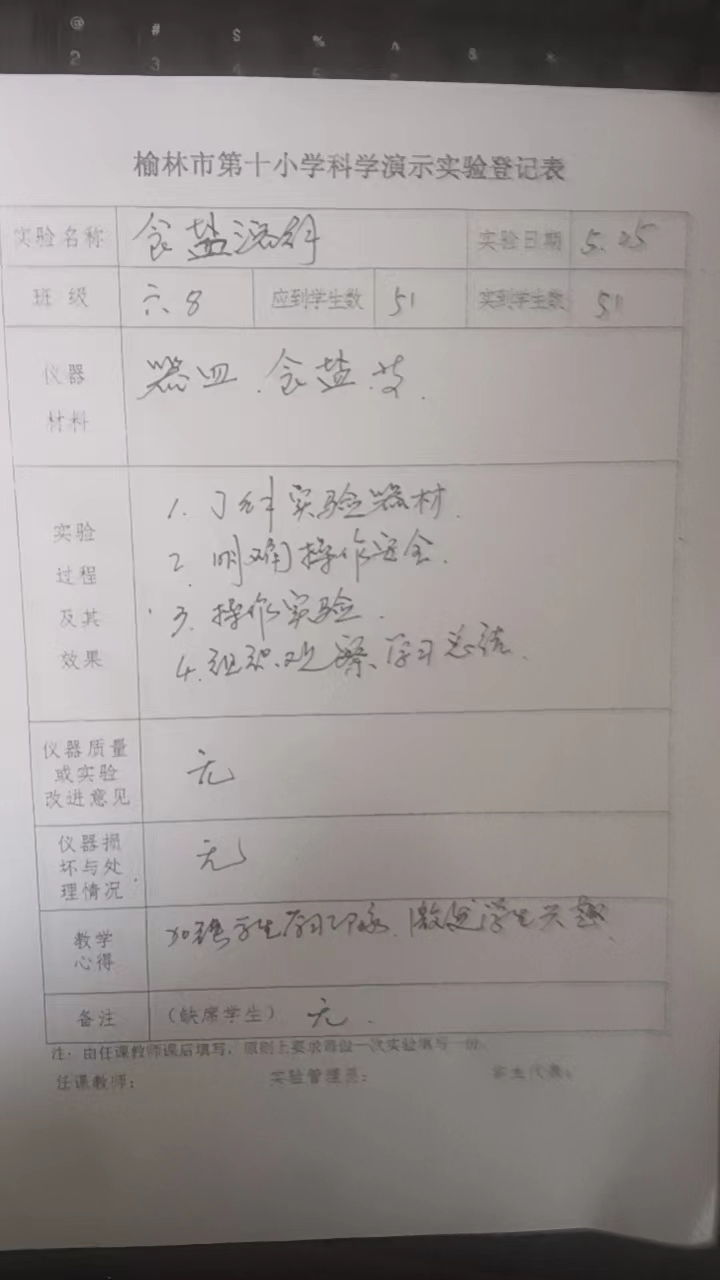 @ # $ % ^ & *
2 3 4 5
榆林市第十小学科学演示实验登记表
实验名称 食盐溶解 实验日期 5.25
班级 六.8 应到学生数 51 实到学生数 51
仪器
材料
器皿.食盐.
实验
过程
及其
效果
1. 了解实验器材.
2. 明确操作安全.
3. 操作实验.
4. 组织观察、学习总结.
仪器质量
或实验
改进意见
无
仪器损
坏与处
理情况
无
教学
心得
加强学生学习印象、激发学生兴趣.
备注 (缺席学生) 无.
注:由任课教师课后填写,原则上要求每做一次实验填写一份。
任课教师: 实验管理员: 学生代表: